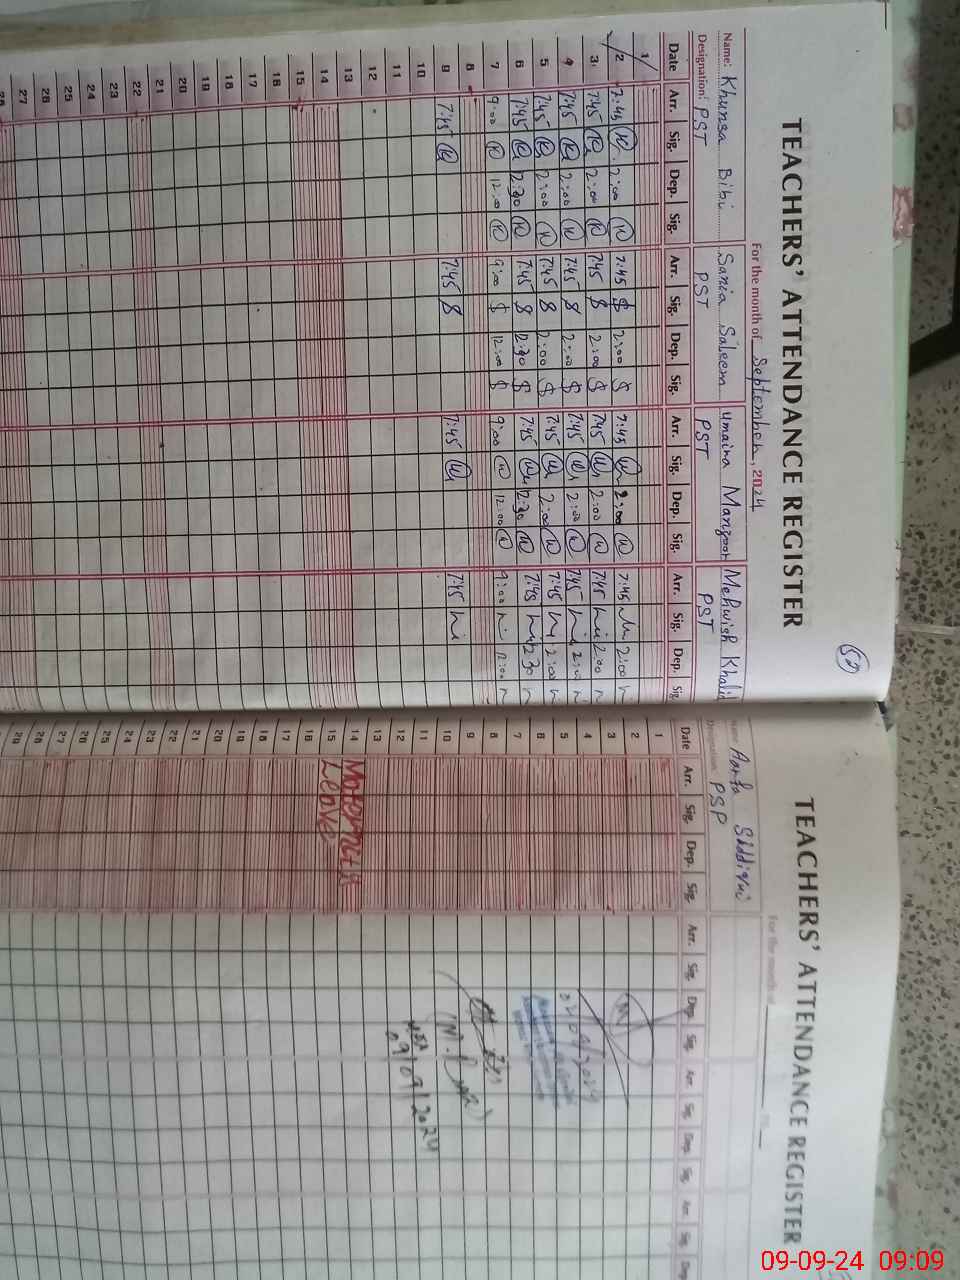 TEACHERS' ATTENDANCE REGISTER
For the month of September, 2024
Name: Khunsa Bibi Sania Saleem Umaina Manzoor Mehwish Khalid
Designation: PST PST PST PST
Date Arr. Sig. Dep. Sig. Arr. Sig. Dep. Sig. Arr. Sig. Dep. Sig. Arr. Sig. Dep. Sig
1
2 7:45 2:00 7:45 2:00 7:45 2:00 7:45 2:00
3 7:45 2:00 7:45 2:00 7:45 2:00 7:45 2:00
4 7:45 2:00 7:45 2:00 7:45 2:00 7:45 2:00
5 7:45 2:00 7:45 2:00 7:45 2:00 7:45 2:00
6 7:45 12:30 7:45 12:30 7:45 12:30 7:45 12:30
7 9:00 12:00 9:00 12:00 9:00 12:00 9:00 12:00
8
9 7:45 7:45 7:45 7:45
10
11
12
13
14
15
16
17
18
19
20
21
22
23
24
25
26
27
TEACHERS' ATTENDANCE REGISTER
For the month of
Name:
Designation: PSP
Date Arr. Sig. Dep. Sig. Arr. Sig. Dep. Sig. Arr. Sig. Dep. Sig. Arr. Sig. Dep.
1
2
3
4
5
6
7
8
9
10
11
12
13
14
15
16
17
18
19
20
21
22
23
24
25
26
27
28
29
Leave
09/09/2024
09-09-24 09:09